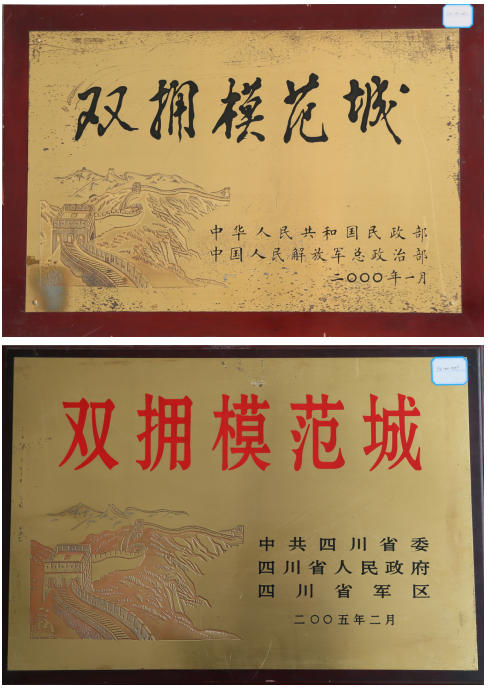 双拥模范城
中华人民共和国民政部
中国人民解放军总政治部
二〇〇〇年一月
双拥模范城
中共四川省委
四川省人民政府
四川省军区
二〇〇五年二月